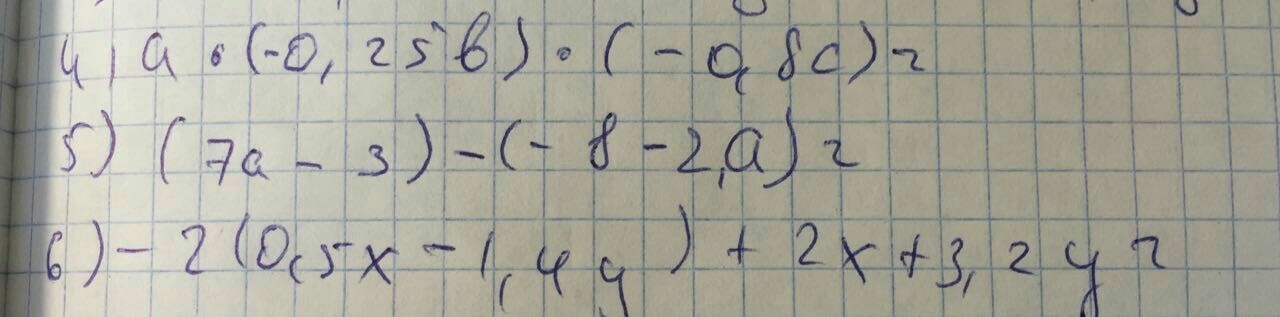 4) a • (-0,25b) • (-0,8c) =
5) (7a - 3) - (-8 - 2,a) =
6) - 2 (0,5x - 1,4y) + 2x + 3,2y =